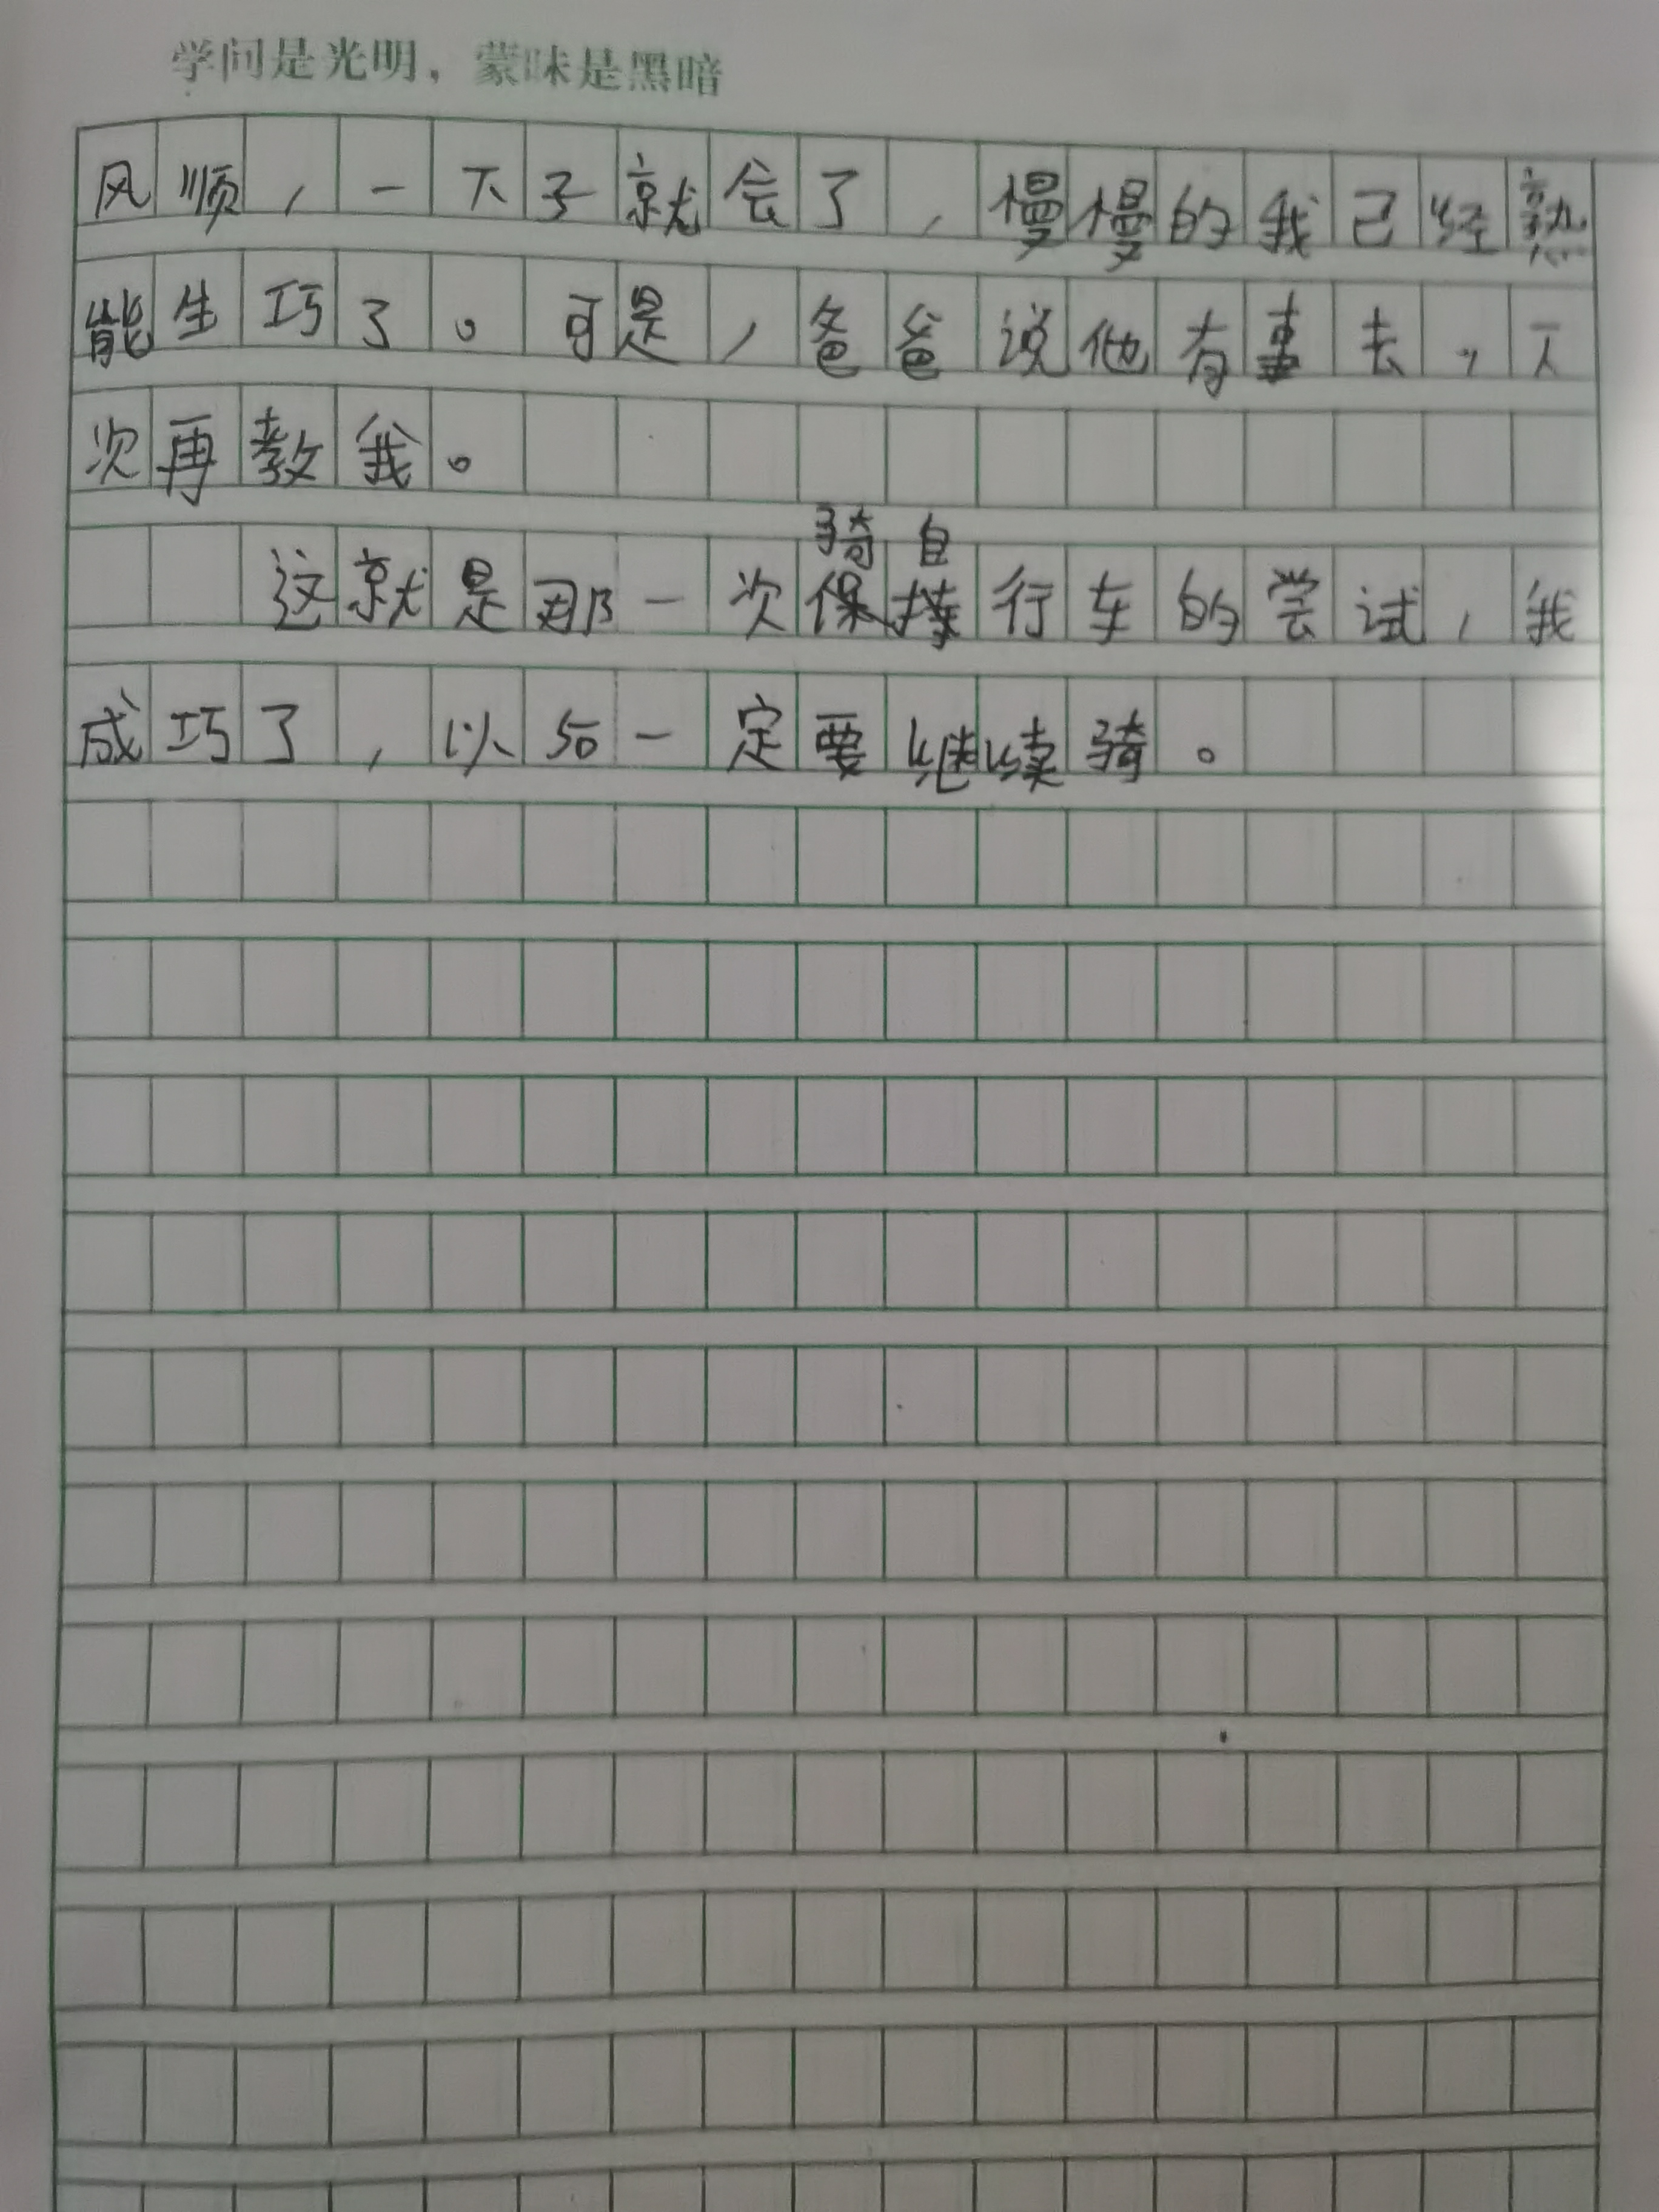 学问是光明，蒙昧是黑暗
风顺，一下子就会了，慢慢的我已经熟
能生巧了。可是，爸爸说他有事去，下
次再教我。
骑自
这就是那一次保持行车的尝试，我
成巧了，以后一定要继续骑。